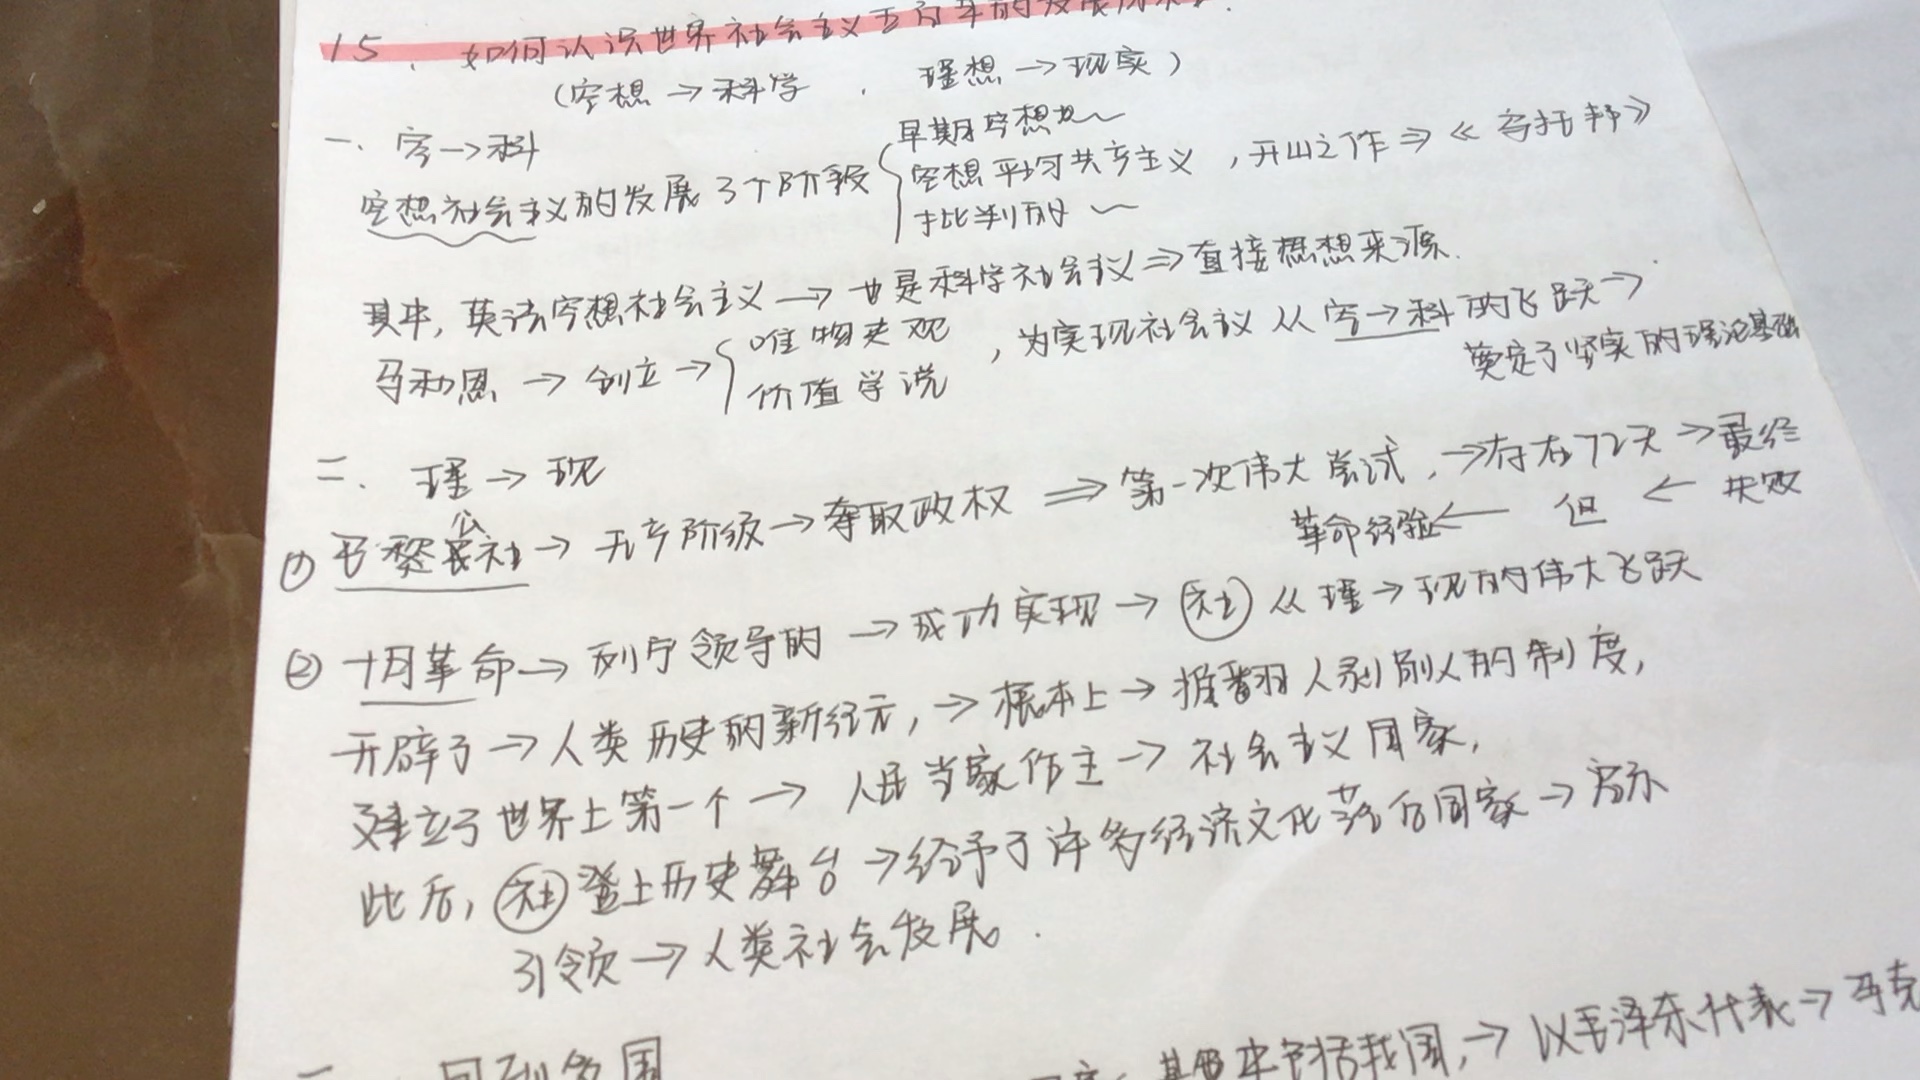 15、如何认识世界社会主义五百年的发展历
(空想→科学, 理想→现实)
一、空→科
空想社会主义的发展3个阶段{早期空想~
空想平均共产主义,开山之作⇒《乌托邦》
批判的~
其中,英法空想社会主义→也是科学社会主义⇒直接思想来源.
马和恩→创立→{唯物史观
价值学说
,为实现社会主义从空→科的飞跃→
奠定了坚实的理论基础
二、理→现
① 巴黎公社→无产阶级→夺取政权⇒第一次伟大尝试,→存在72天→最终
失败←但←革命经验
② 十月革命→列宁领导的→成功实现→社从理→现的伟大飞跃
开辟了→人类历史的新纪元,→根本上→推翻人剥削人的制度,
建立了世界上第一个→人民当家作主→社会主义国家,
此后,社登上历史舞台→给予了许多经济文化落后国家→启示
引领→人类社会发展.
回到多国
其中包括我国,→以毛泽东代表→马克